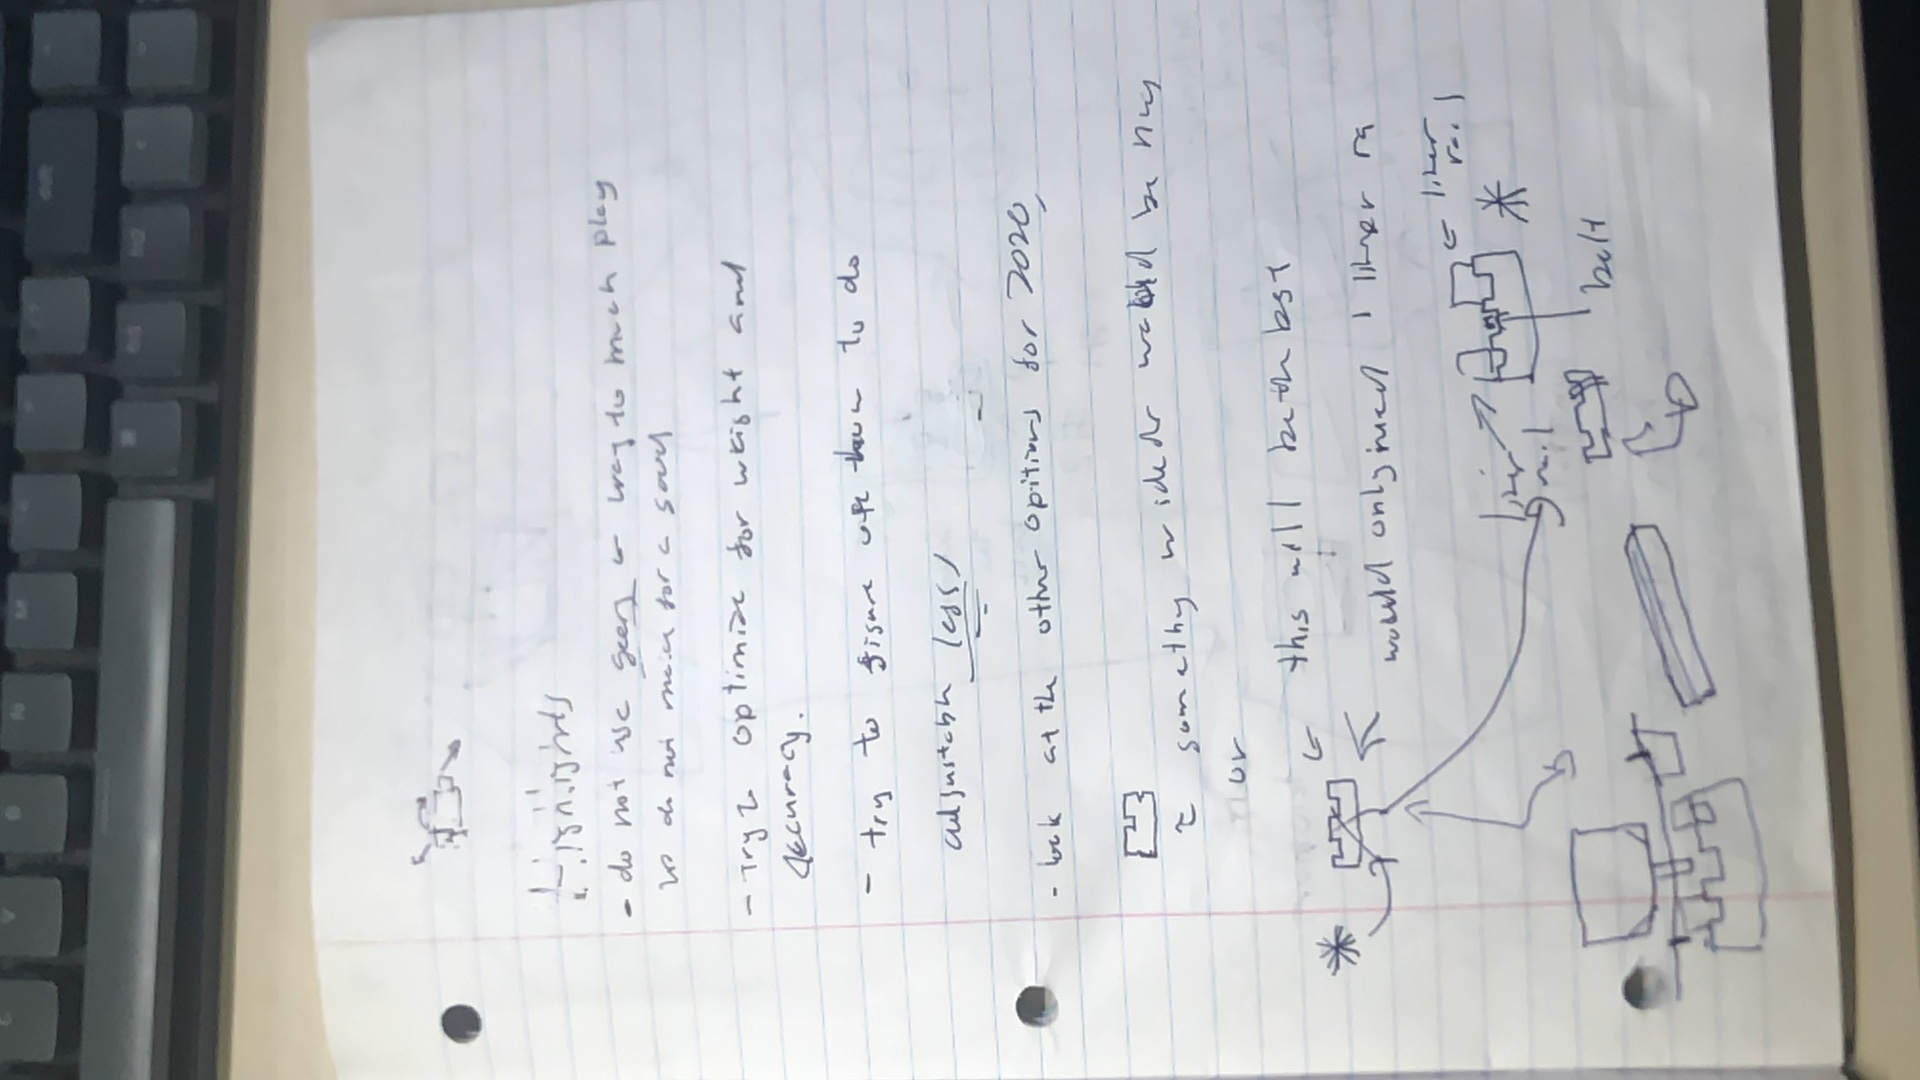 Highlights
- do not use gears way to much play
do not for a
- Try to optimize for weight and
accuracy.
- try to figure to do
adjustable legs
- look at the other opitions for 2020,
would be
or
this will be the best
would only need 1 liner ra
liner
rail
liner
rail
belt